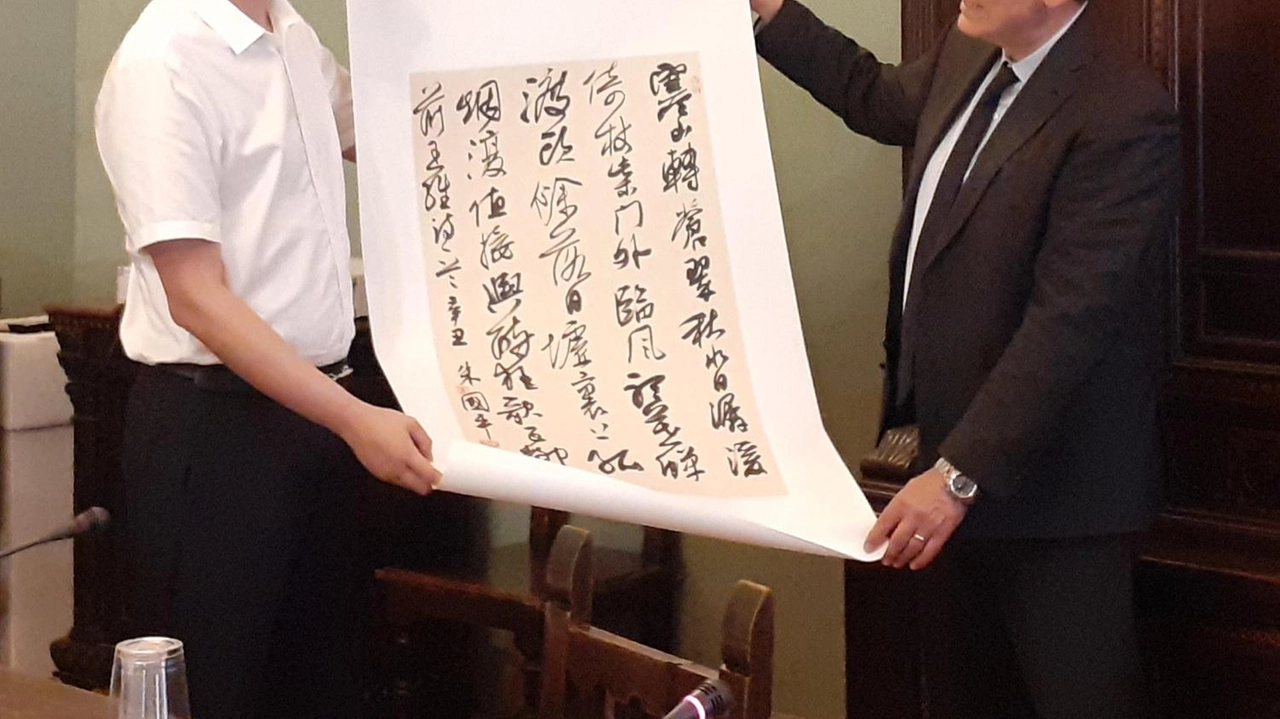 寒山轉蒼翠秋水日潺湲
倚杖柴门外臨风聽暮蟬
渡头馀落日墟裏上孤
烟復值接輿醉狂歌五柳
前王維诗於辛丑朱國平